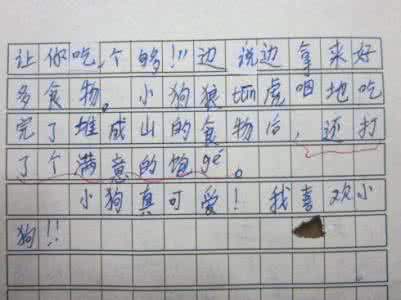 让你吃个够!!边说边拿来好
多食物。小狗狼tūn虎咽地吃
完了堆成山的食物后，还打
了个满意的饱gé。
小狗真可爱！我喜欢小
狗!!